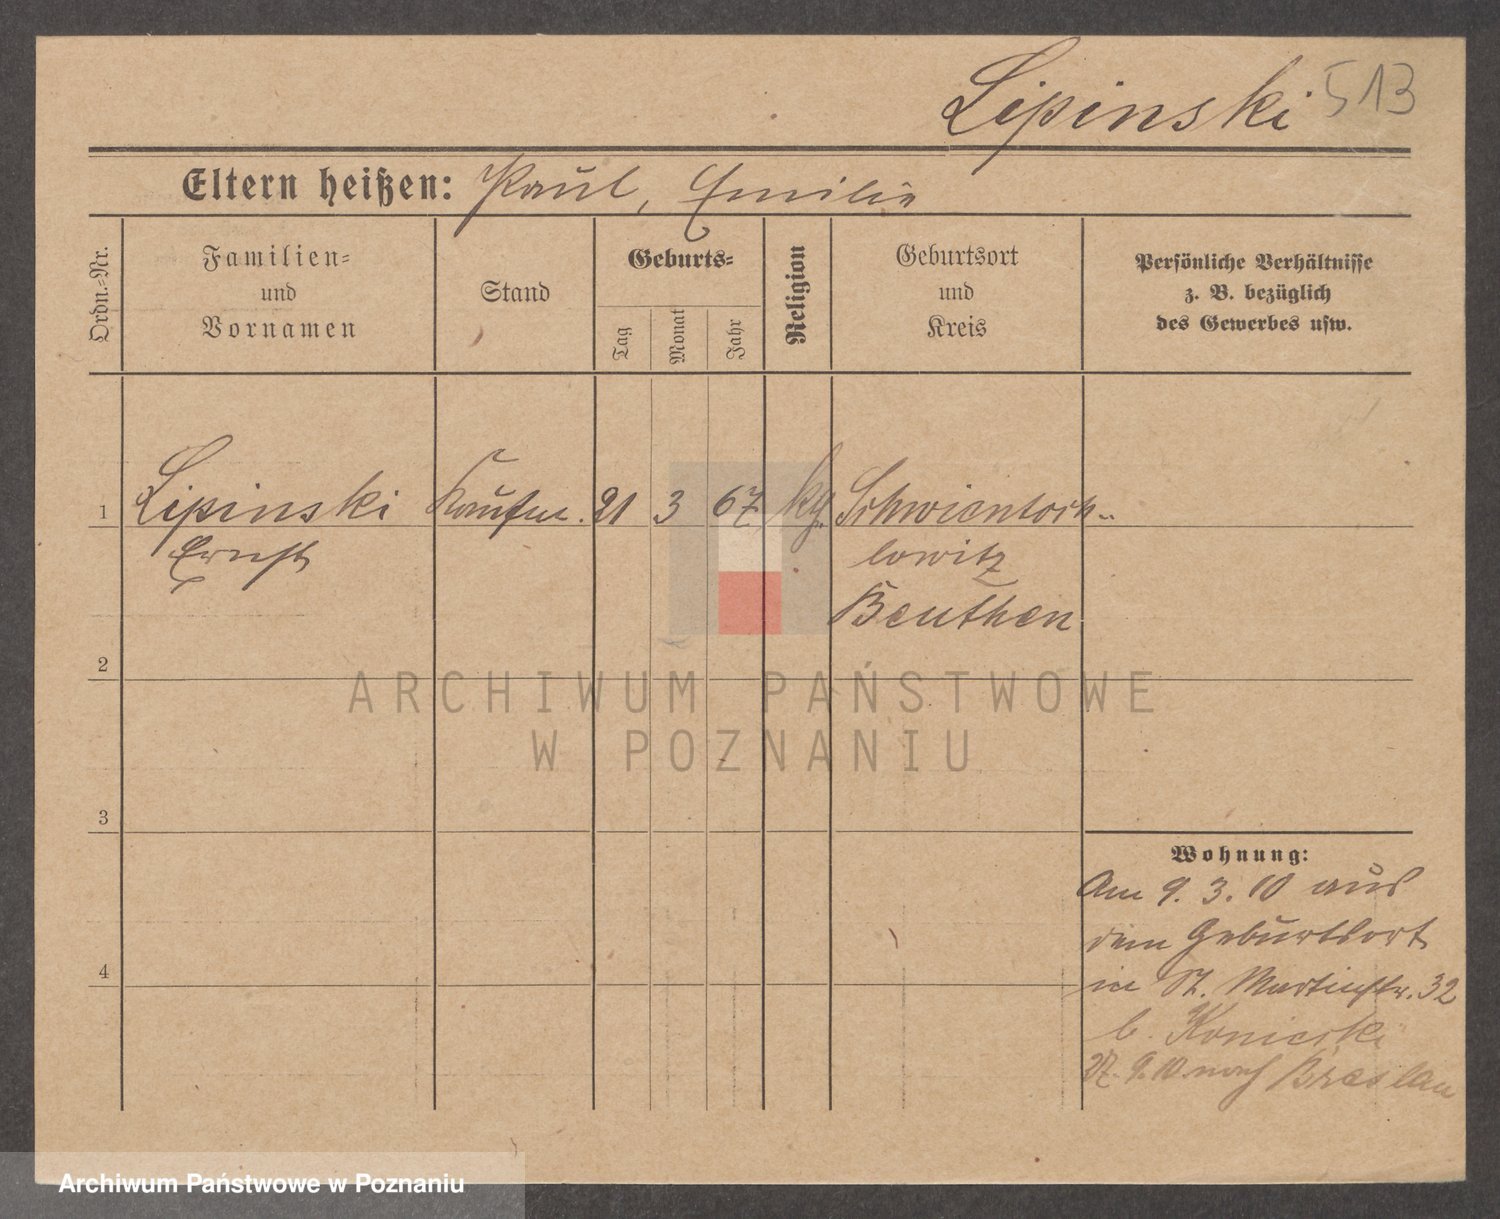 Lipinski 513
Eltern heißen: Paul, Emilie
Ordn.-Nr.
Familien-
und
Vornamen
Stand
Geburts-
Tag
Monat
Jahr
Religion
Geburtsort
und
Kreis
Persönliche Verhältnisse
z. B. bezüglich
des Gewerbes usw.
1 Lipinski Kaufm. 21 3 67 kg. Schwientoch-
Ernst lowitz
Beuthen
2
3
4
Wohnung:
Am 9. 3. 10 aus
dem Geburtsort
in St. Martinstr. 32
b. Konierski
27. 9. 10 nach Breslau
ARCHIWUM PAŃSTWOWE
W POZNANIU
Archiwum Państwowe w Poznaniu